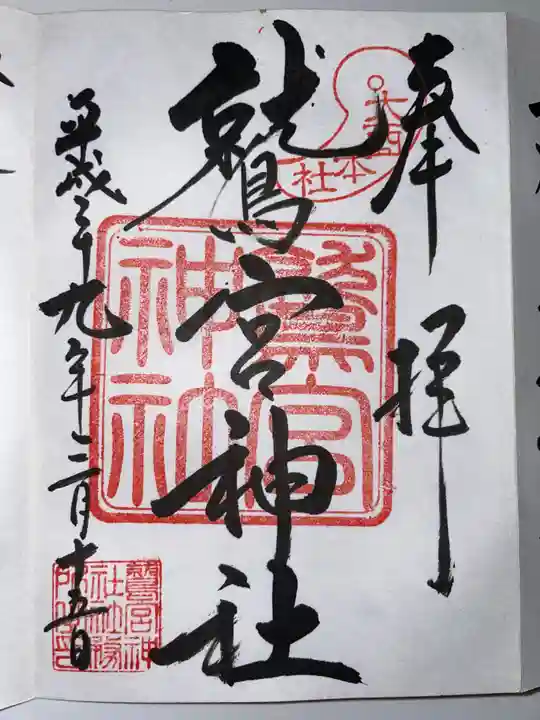 奉拝
大酉本社
鷲宮神社
鷲宮神社
平成二十九年三月十五日
鷲宮神社社務所印